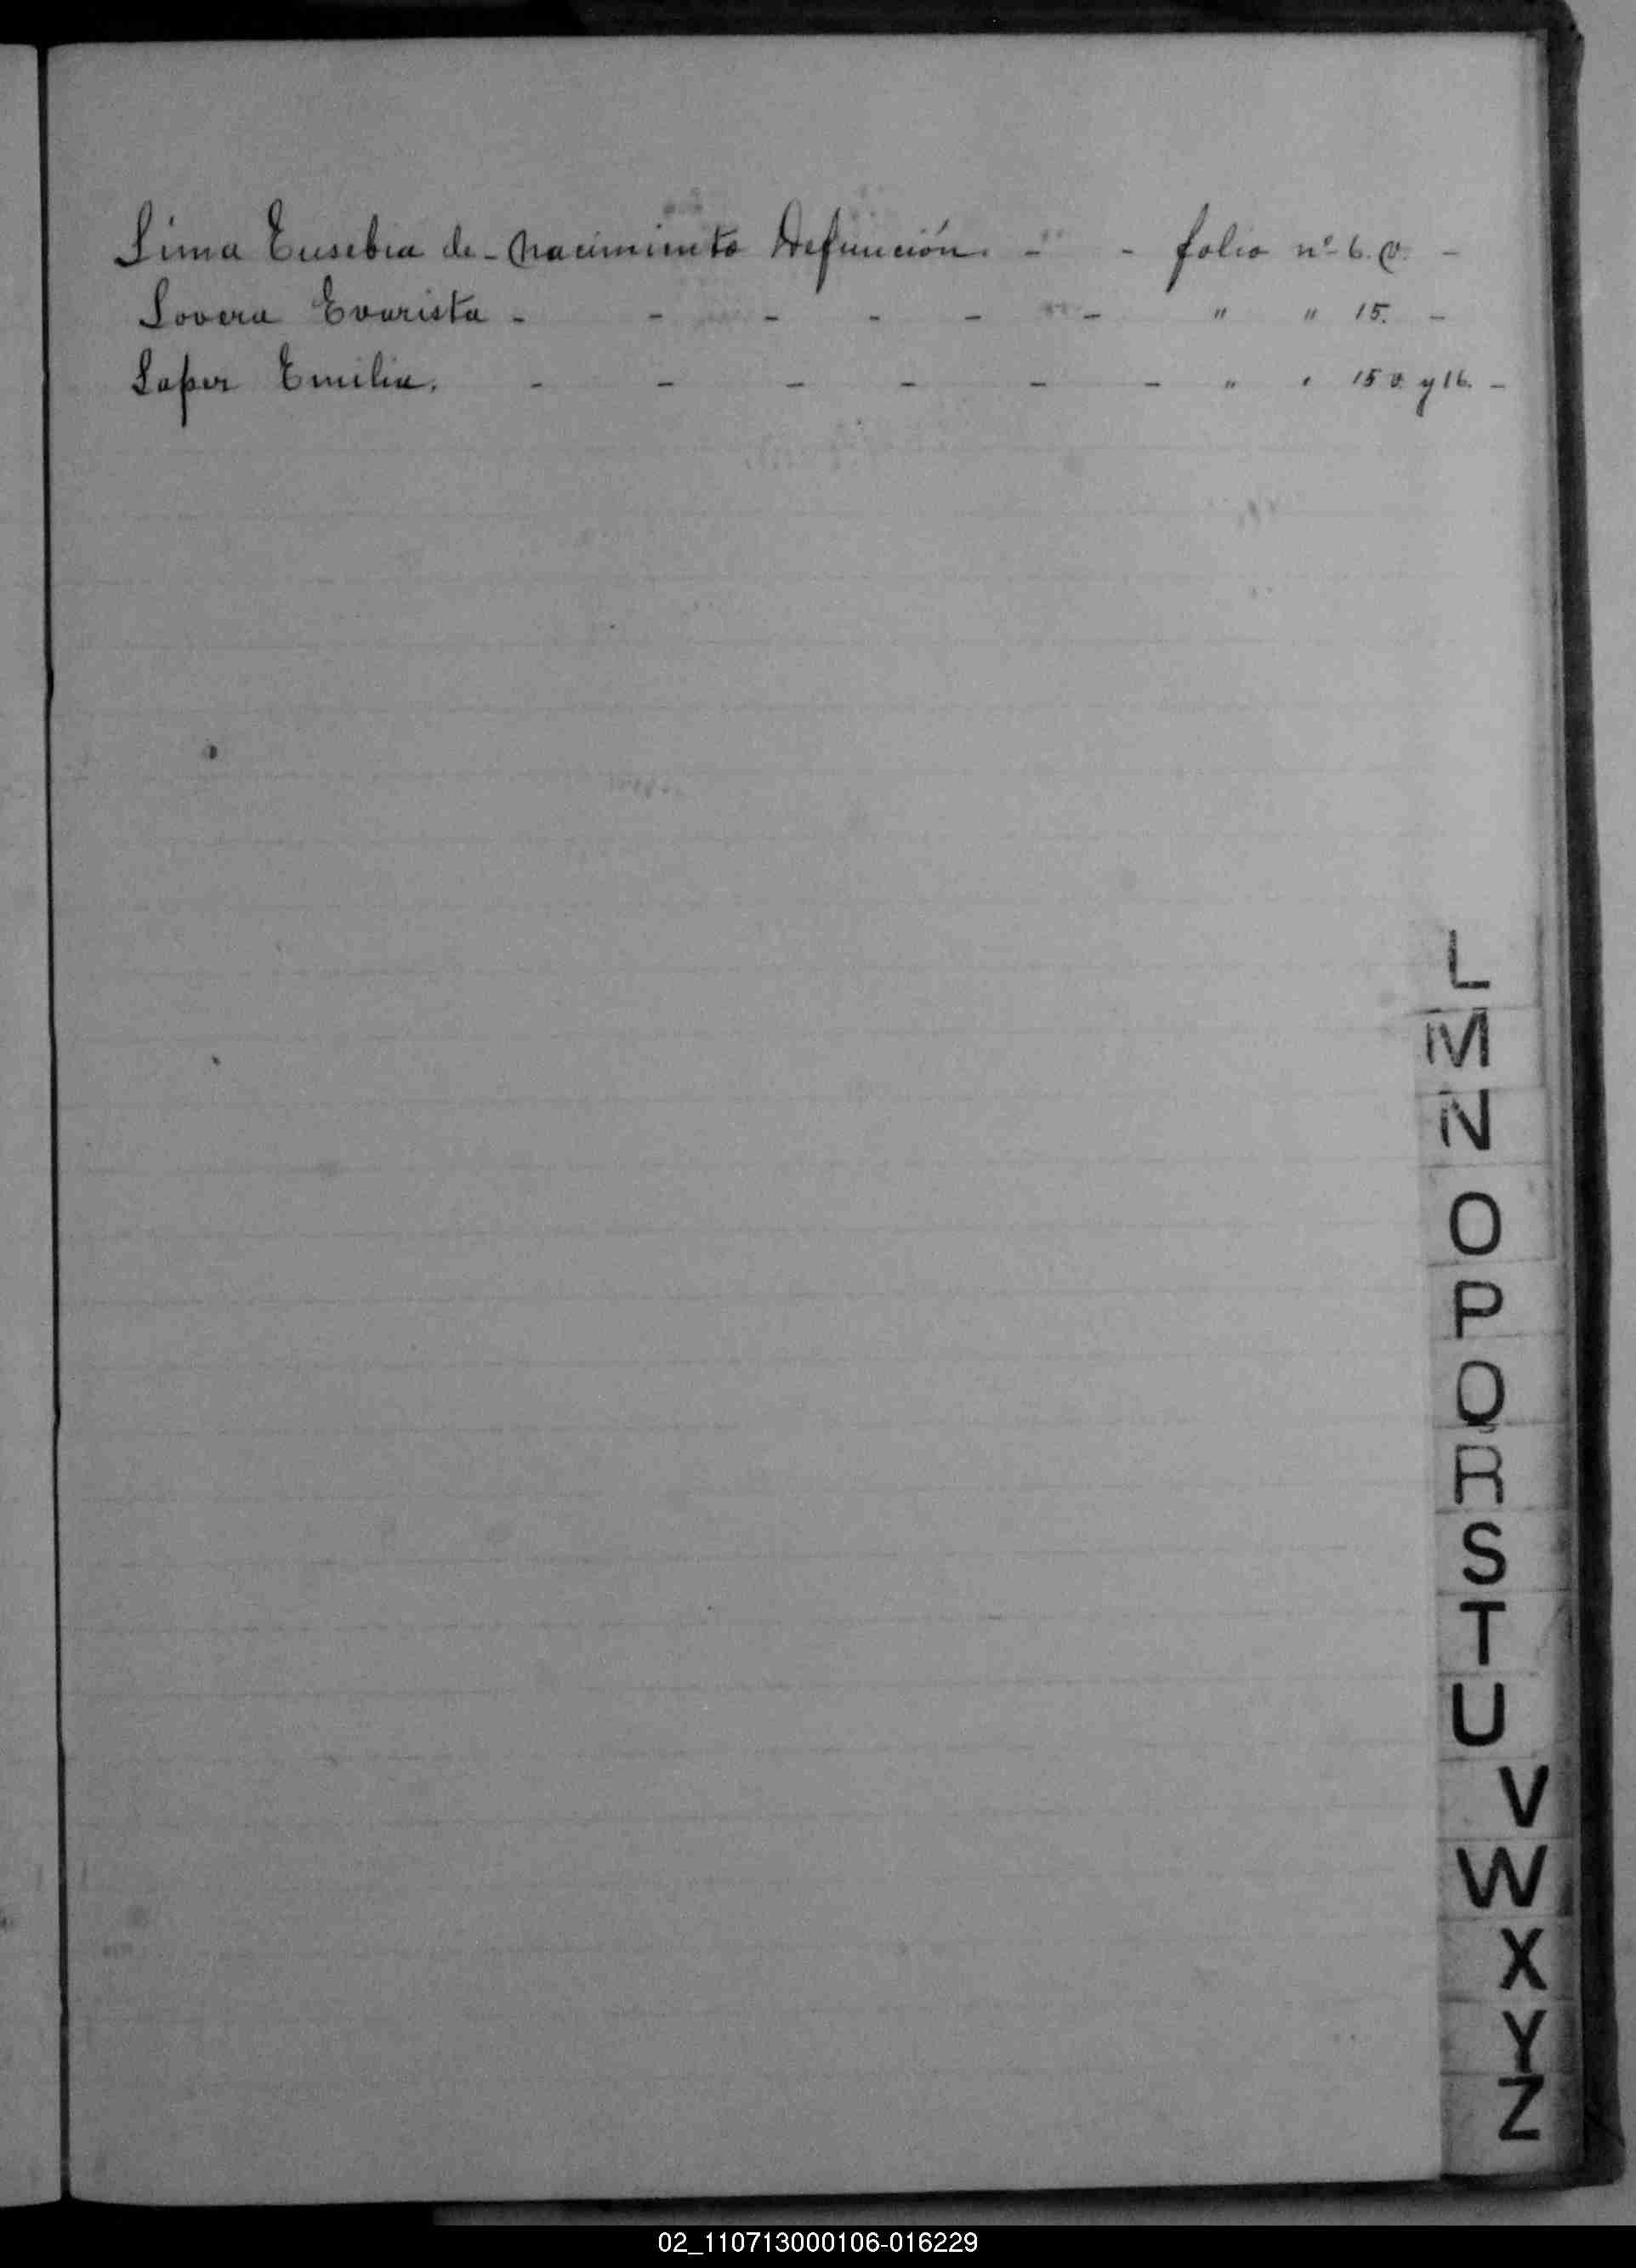 Lima Eusebia de - Nacimiento Defunción. - - folio nº 6. v. -
Lovera Evarista - - - - - - " " 15. -
Laper Emilia. - - - - - - " " 15 v. y 16. -
L
M
N
O
P
Q
R
S
T
U
V
W
X
Y
Z
02_110713000106-016229